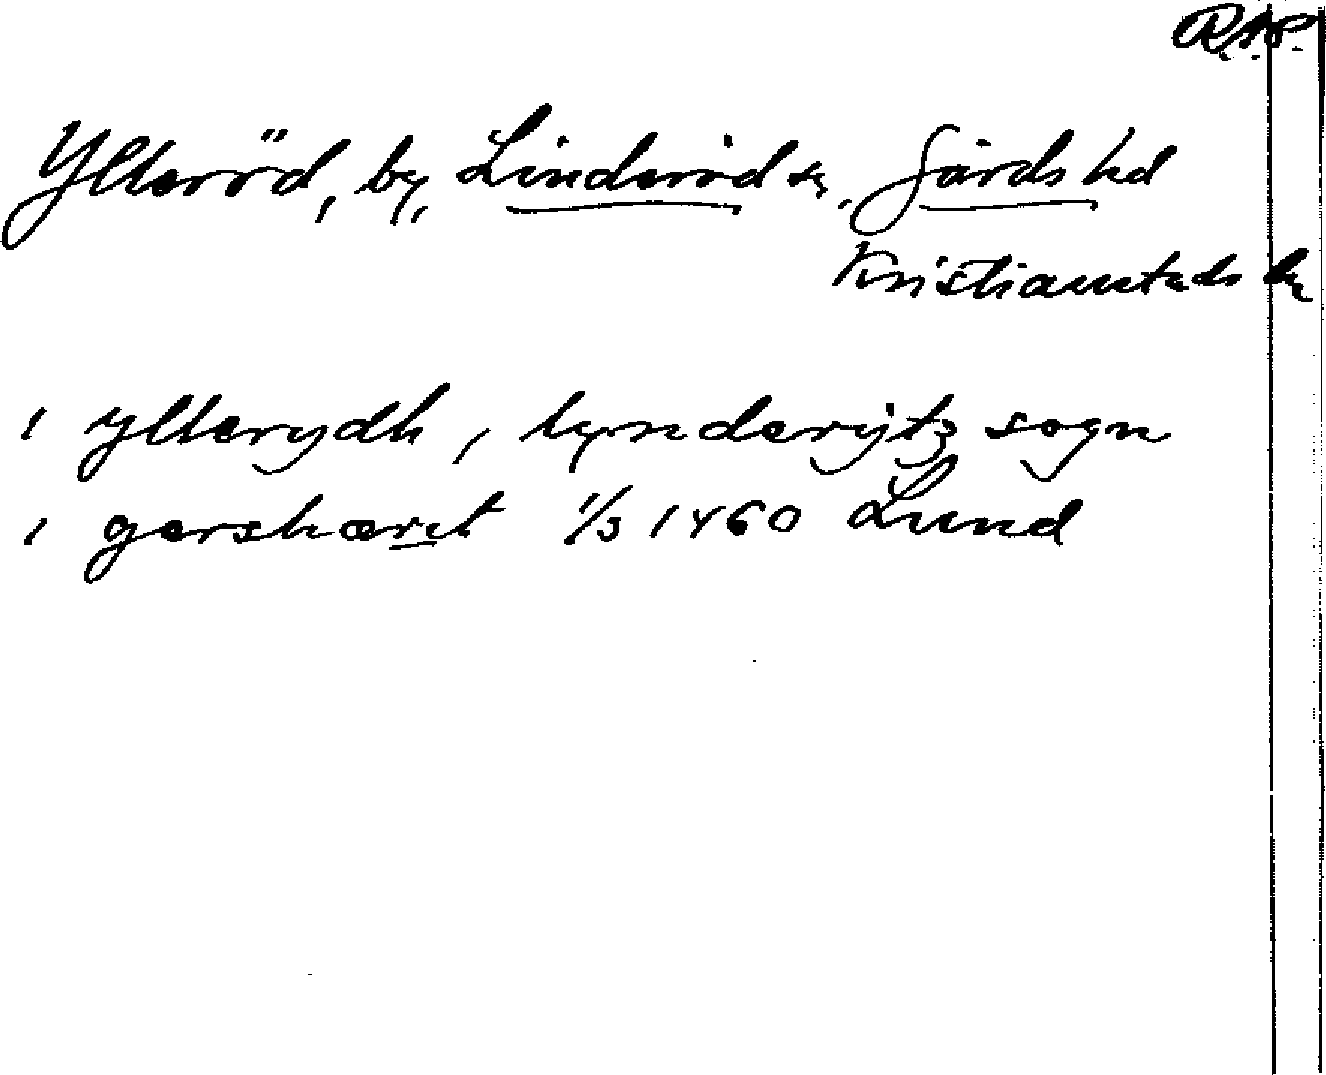 R.A.P.
Ylleröd, by, Linderöd sn, Gärds hd
Kristianstads län
i yllerydh, lynderytz sogn
i gershæret 1/3 1460 Lund